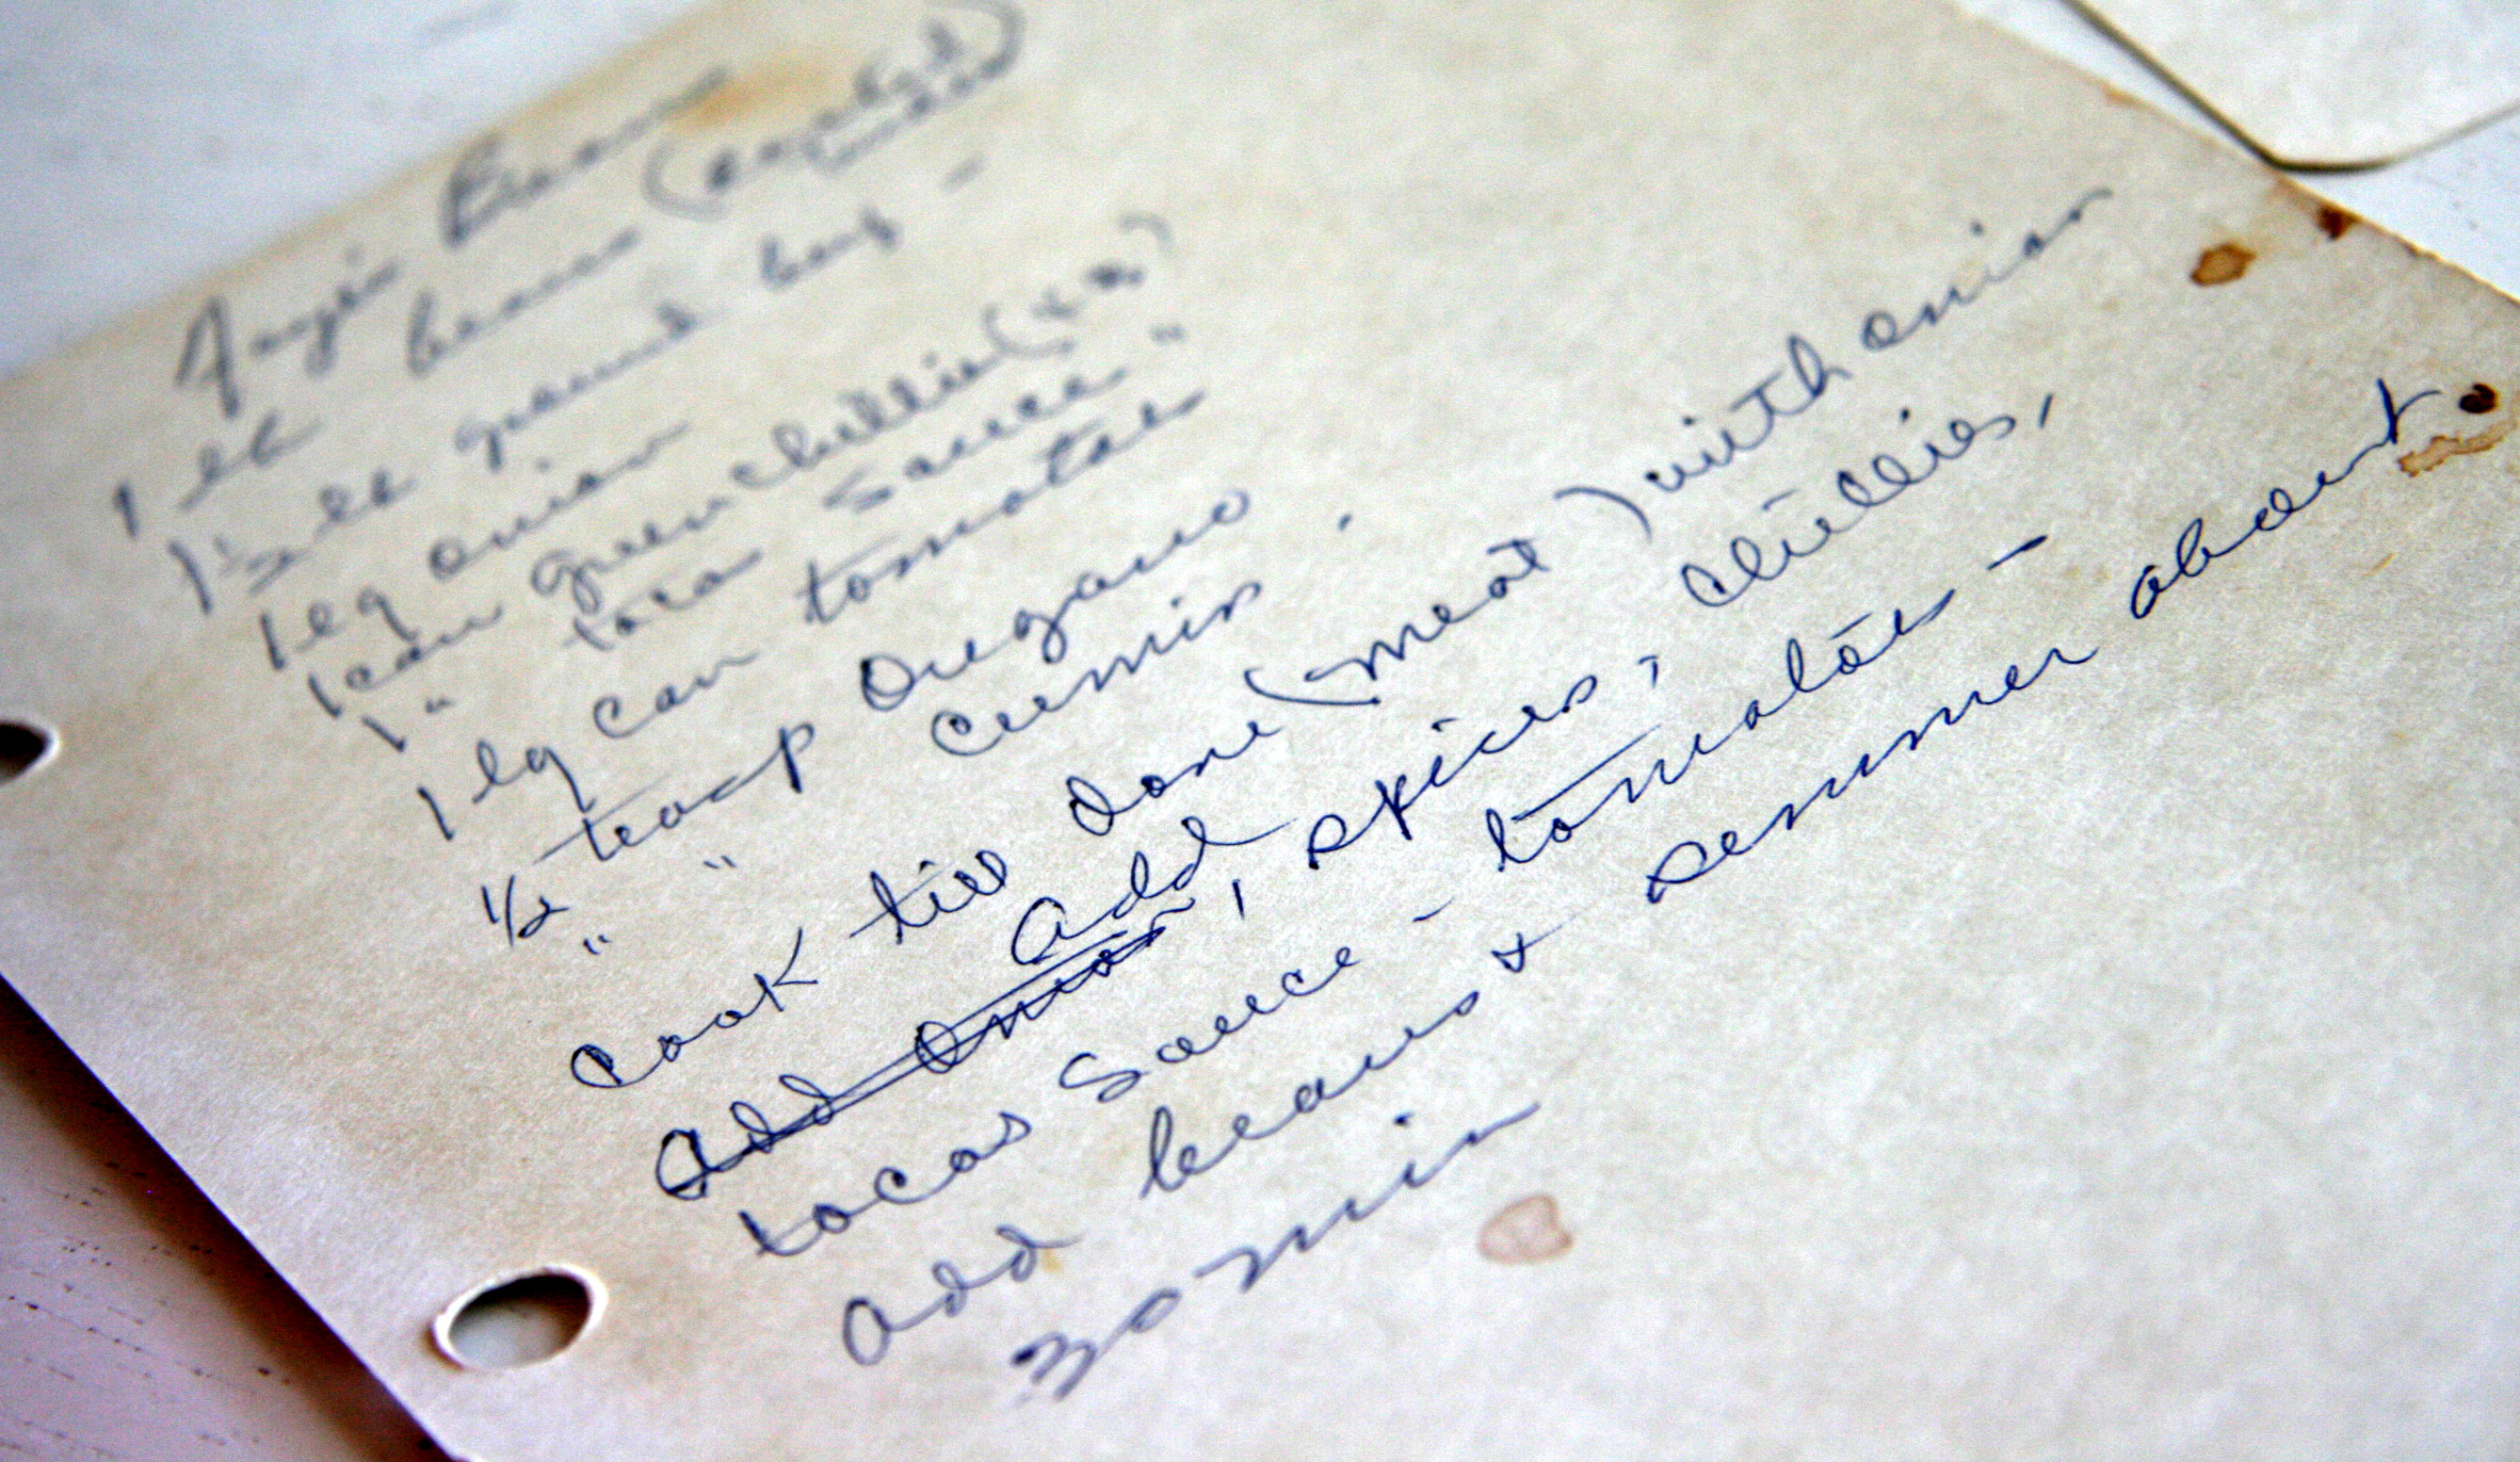 Beans
1 lb beans (cooked)
1 1/2 lb ground beef -
1 lg onion
1 can green chillies
1 " taco sauce "
1 lg can tomatoes
1/2 teasp Oregano
" " cumin.
cook till done (meat) with onion
add
Add Onion, spices, chillies,
tacos Sauce - tomatoes -
Add beans + semmer about
30 min